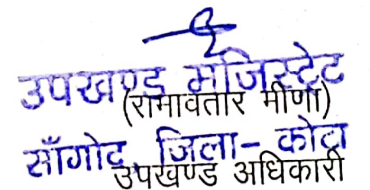 उपखण्ड मजिस्ट्रेट
(रामावतार मीणा)
साँगोद, जिला- कोटा
उपखण्ड अधिकारी